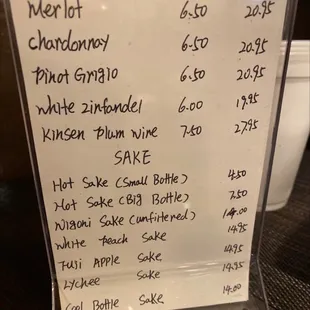 Merlot 6.50 20.95
Chardonnay 6.50 20.95
Pinot Grigio 6.50 20.95
White Zinfandel 6.00 19.95
Kinsen Plum Wine 7.50 27.95
SAKE
Hot Sake (Small Bottle) 4.50
Hot Sake (Big Bottle) 7.50
Nigori Sake (unfiltered) 14.00
White Peach Sake 14.95
Fuji Apple Sake 14.95
Lychee Sake 14.95
Cool Bottle Sake 14.00